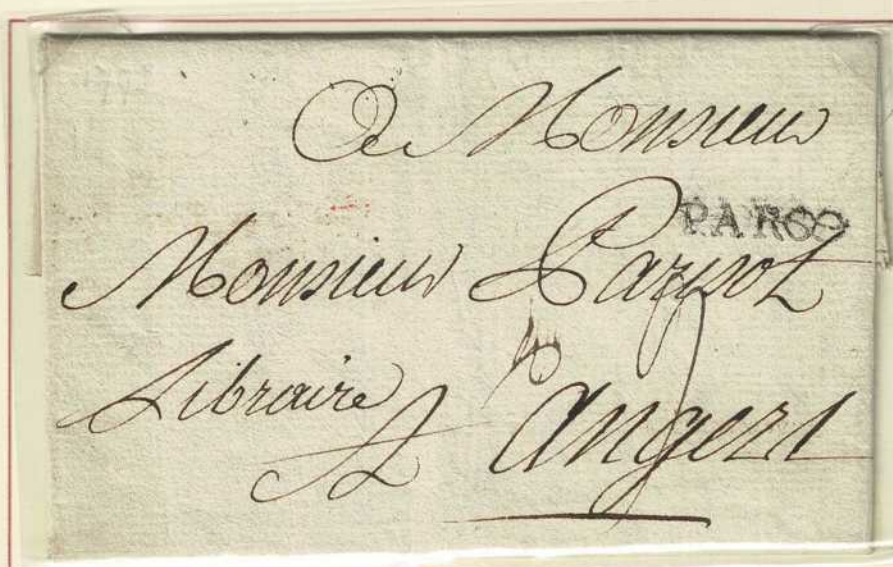 A Monsieur
Monsieur Parisot
Libraire
A Angers